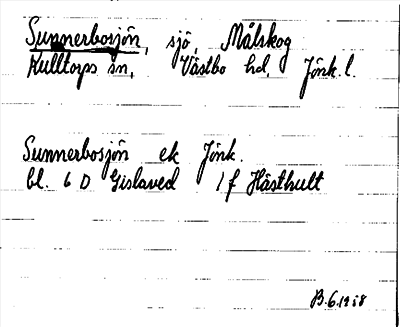 Sunnerbosjön, sjö, Målskog
Kulltorps sn, Västbo hd, Jönk. l.
Sunnerbosjön ek Jönk.
bl. 6 D Gislaved 1 f Hästhult
B.6.1958